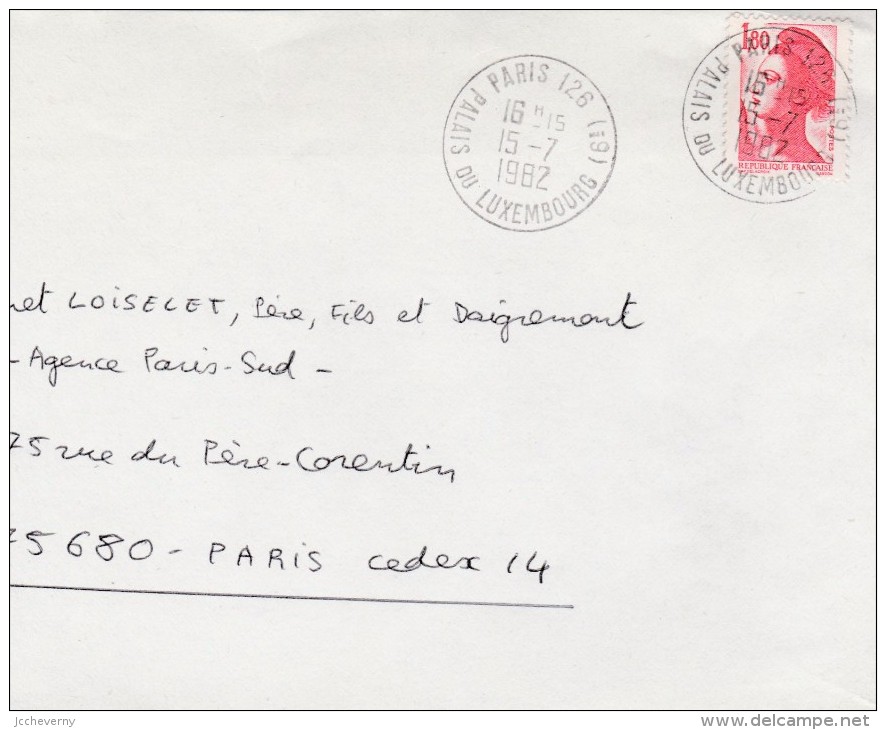 PARIS 126 (6E)
16 H 15
15-7
1982
PALAIS DU LUXEMBOURG
1,80
PARIS 126 (6E)
16 H 15
15-7
1982
PALAIS DU LUXEMBOURG
REPUBLIQUE FRANCAISE
net LOISELET, Père, Fils et Daigremont
- Agence Paris-Sud -
75 rue du Père-Corentin
75680 - PARIS cedex 14
jccheverny
www.delcampe.net